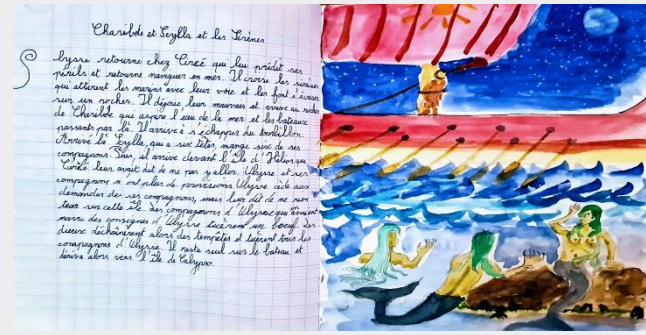 Charibde et Scylla et les Sirènes
Ulysse retourne chez Circé qui lui prédit ses
périls et retourne naviguer en mer. Il croise les sirènes
qui attirent les marins avec leur voie et les font s'écraser
sur un rocher. Il déjoue leur mauvais et arrive au rocher
de Charibde qui aspire l'eau de la mer et les bateaux
passants par là. Il arrive à s'échapper du tourbillon.
Arrive là Scylla, qui a six têtes, mange six de ses
compagnons. Puis, il arrive devant l'île d'Hélios que
Circé leur avait dit de ne pas y aller. Ulysse et ses
compagnons n'ont plus de provisions Ulysse cède aux
demandes de ses compagnons, mais leur dit de ne rien
tuer sur cette île. Les compagnons d'Ulysse qui
parmi des consignes d'Ulysse tuèrent un boeuf. Les
dieux déchaînèrent alors des tempêtes et tuèrent tous les
compagnons d'Ulysse. Il reste seul sur le bateau et
dérive alors vers l'île de Calypso.